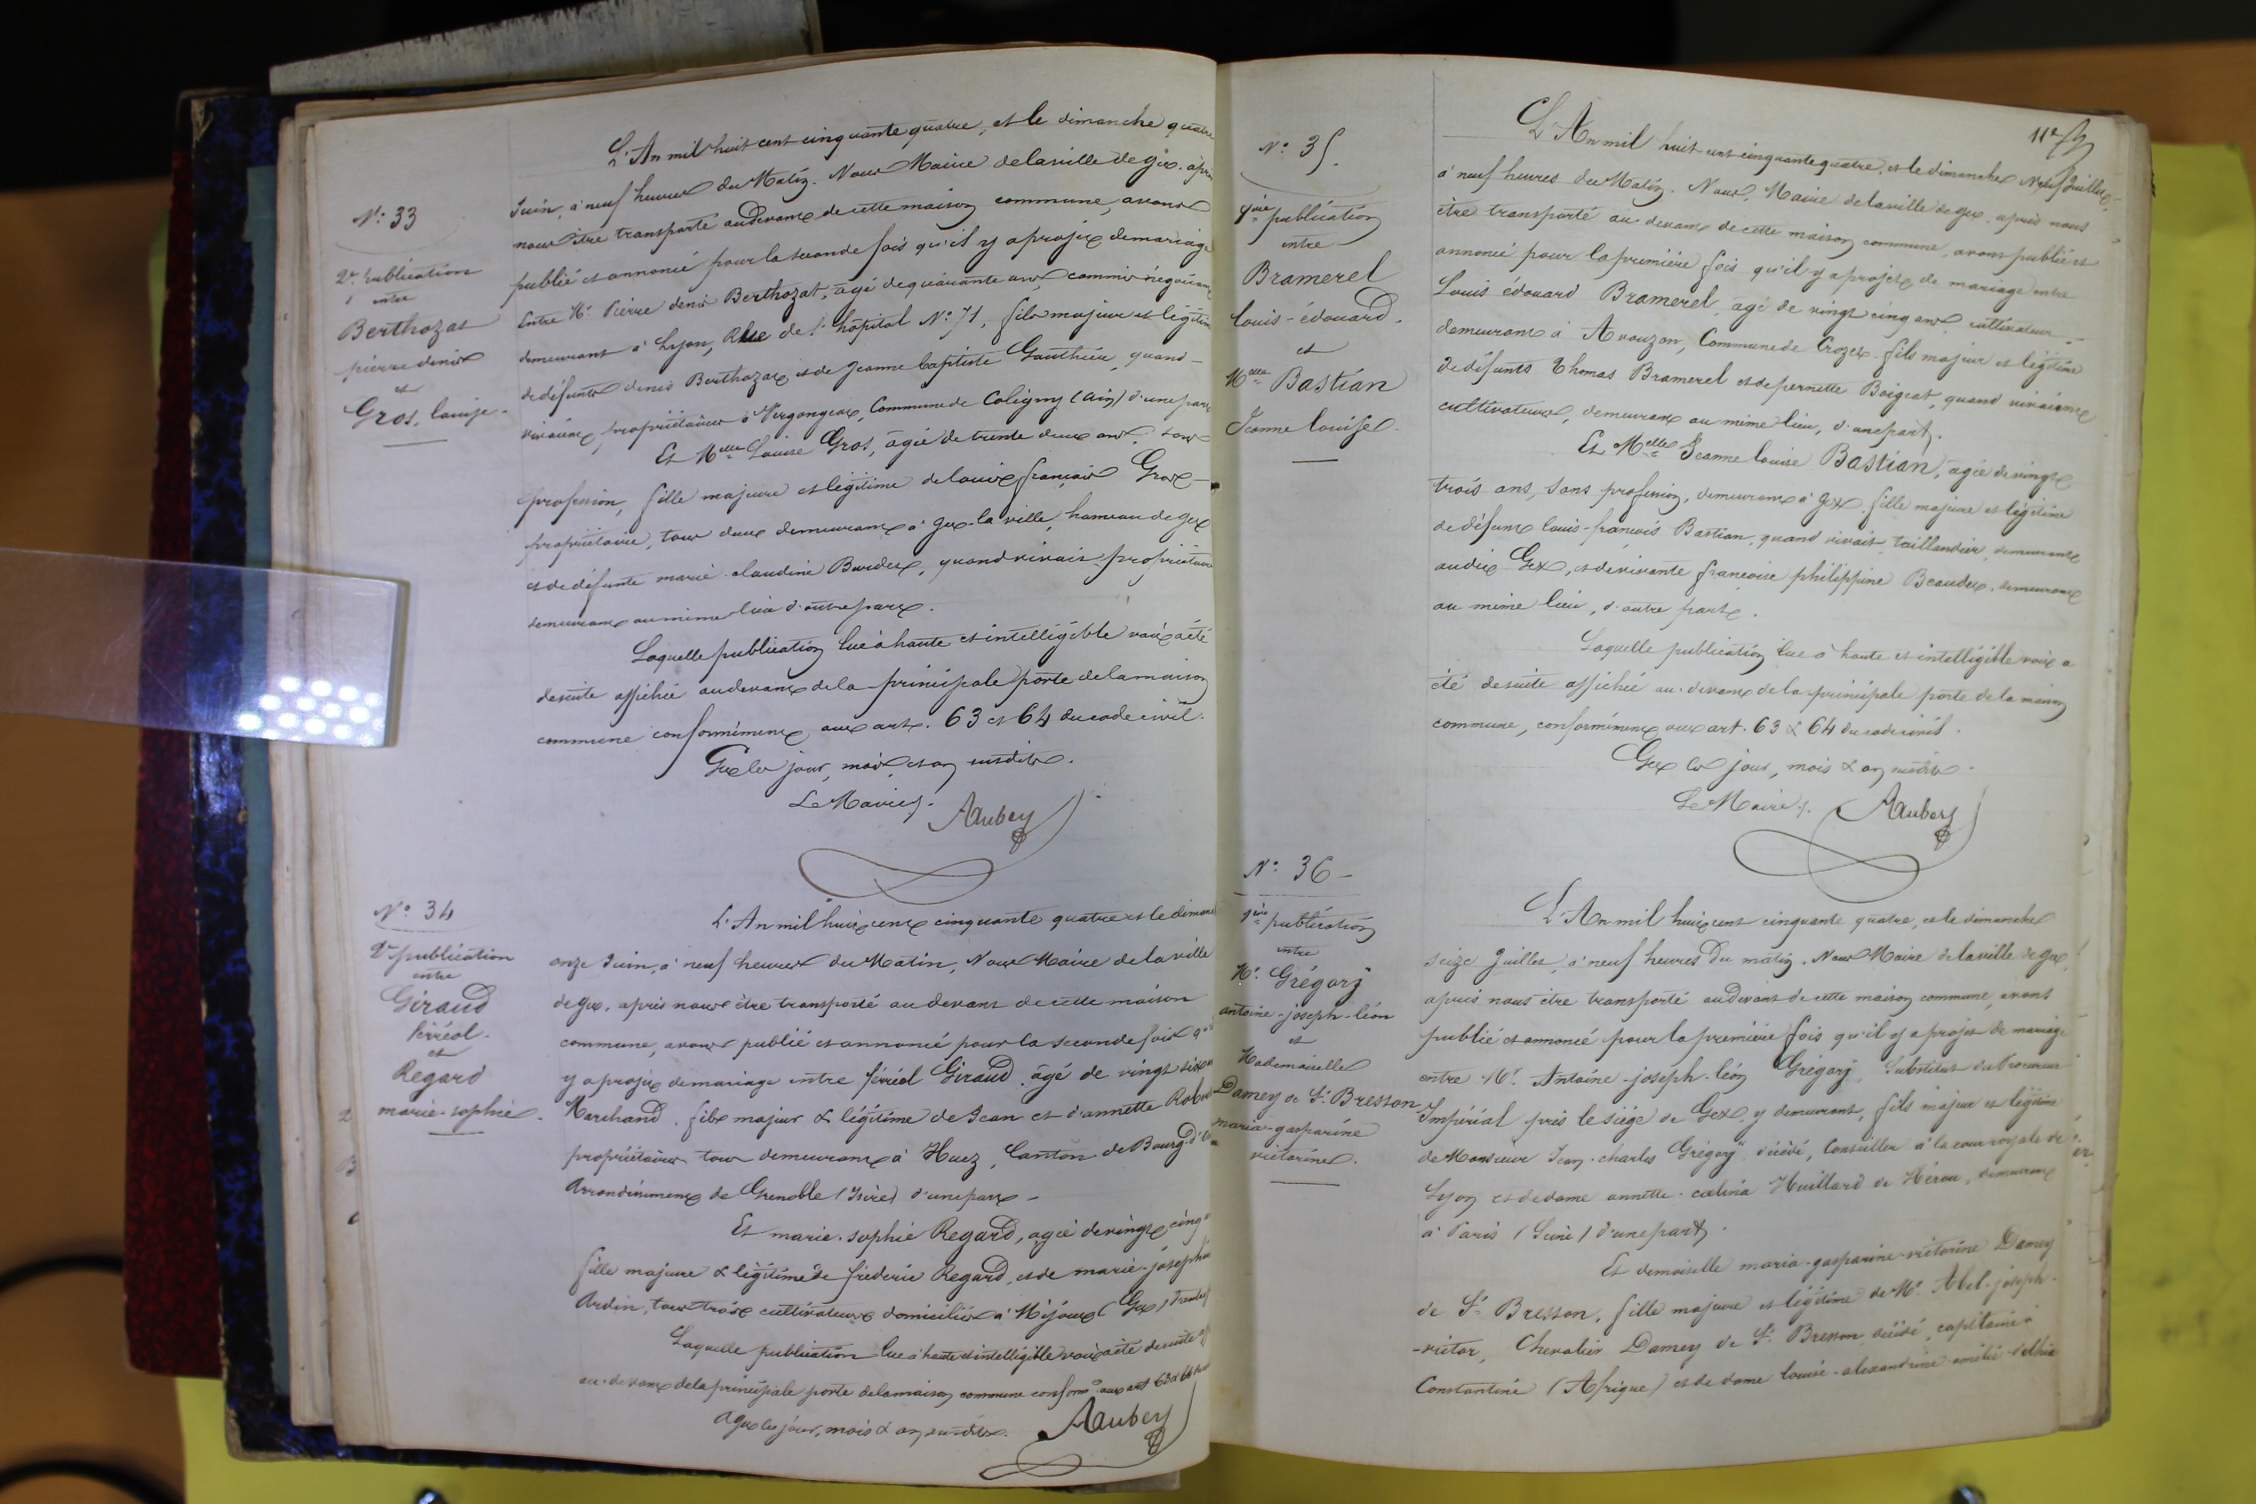 N.° 33
2.e publication
entre
Berthozat
pierre denis
et
Gros, Louise.
L'An mil huit cent cinquante quatre, et le dimanche quatre
Juin, à neuf heures du Matin. Nous Maire de la ville de Gex. après
nous être transporté au devant de cette maison commune, avons
publié et annoncé pour la seconde fois qu'il y a projet de mariage
Entre Mr Pierre denis Berthozat, âgé de quarante ans, commis négociant
demeurant à Lyon, Rue de l'hôpital N.° 71, fils majeur et légitime
de défunts denis Berthozat et de Jeanne baptiste Gauthier, quand
vivaient, propriétaires à Vergongeat, Commune de Coligny (Ain) d'une part
Et Melle Louise Gros, âgée de trente deux ans, sans
profession, fille majeure et légitime de louis françois Gros
propriétaire, tous deux demeurant à Gex-la-ville, hameau de Gex
et de défunte marie claudine Burdet, quand vivait propriétaire
demeurant au même lieu d'autre part.
Laquelle publication lue à haute et intelligible voix a été
desuite affichée au devant de la principale porte de la maison
commune conformément aux art. 63 et 64 du code civil.
Gex les jour, mois et an susdits.
Le Maire.
AAubery
N.° 34
2.e publication
entre
Giraud
ferréol.
et
Regard
marie-sophie.
L'An mil huit cent cinquante quatre et le dimanche
onze Juin, à neuf heures du Matin, Nous Maire de la ville
de Gex. après nous être transporté au devant de cette maison
commune, avons publié et annoncé pour la seconde fois qu'il
y a projet de mariage entre ferréol Giraud âgé de vingt six ans
Marchand. fils majeur & légitime de Jean et d'annette
propriétaires tous demeurant à Huez, Canton de Bourg d'
Arrondissement de Grenoble (Isère) d'une part
Et marie-sophie Regard, âgée de vingt cinq
fille majeure & légitime de fréderic Regard, et de marie-joséphine
Ardin, tous trois cultivateurs domiciliés à Mijoux (Gex)
Laquelle publication lue à haute et intelligible voix a été desuite
au-devant de la principale porte de la maison commune conform.t aux art 63 & 64
à Gex les jour, mois & an susdits.
AAubery
11e
N.° 35.
1ère publication
entre
Bramerel
louis-édouard.
et
Melle Bastian
Jeanne louise.
L'An mil huit cent cinquante quatre, et le dimanche Neuf Juillet,
à neuf heures du Matin. Nous, Maire de la ville de Gex, après nous
être transporté au devant de cette maison commune, avons publié et
annoncé pour la première fois qu'il y a projet de mariage entre
Louis édouard Bramerel, âgé de vingt cinq ans, cultivateur
demeurant à Avouzon, Commune de Crozet. fils majeur et légitime
de défunts Thomas Bramerel et de pernette Boigeat, quand vivaient
cultivateurs, demeurant au même lieu, d'une part.
Et Melle Jeanne louise Bastian, âgée de vingt
trois ans, sans profession, demeurant à Gex. fille majeure et légitime
de défunt louis-françois Bastian, quand vivait, taillandier, demeurant
audit Gex, et de vivante françoise philippine Beaudet, demeurant
au même lieu, d'autre part.
Laquelle publication lue à haute et intelligible voix a
été desuite affichée au-devant de la principale porte de la maison
commune, conformément aux art. 63 & 64 du code civil.
Gex les jour, mois & an susdits.
Le Maire.
AAubery
N.° 36
1ère publication
entre
Mr. Grégorj
antoine-joseph-léon
et
Mademoiselle
Damey de St. Bresson
maria-gasparine
victorine.
L'An mil huit cent cinquante quatre, et le dimanche
seize Juillet, à neuf heures du matin. Nous Maire de la ville de Gex,
après nous être transporté au devant de cette maison commune, avons
publié et annoncé pour la première fois qu'il y a projet de mariage
entre Mr. Antoine-joseph-léon Grégorj, Substitut du Procureur
Impérial près le siège de Gex, y demeurant, fils majeur et légitime
de Monsieur Jean-charles Grégorj décédé, Conseiller à la cour royale de
Lyon et de dame annette-coelina Huillard de Hérou, demeurant
à Paris (Seine) d'une part.
Et demoiselle maria-gasparine-victorine Damey
de St. Bresson, fille majeure et légitime de Mr. Abel-joseph-
-victor, Chevalier Damey de St. Bresson décédé, capitaine à
Constantine (Afrique) et de dame louise-alexandrine-amélie